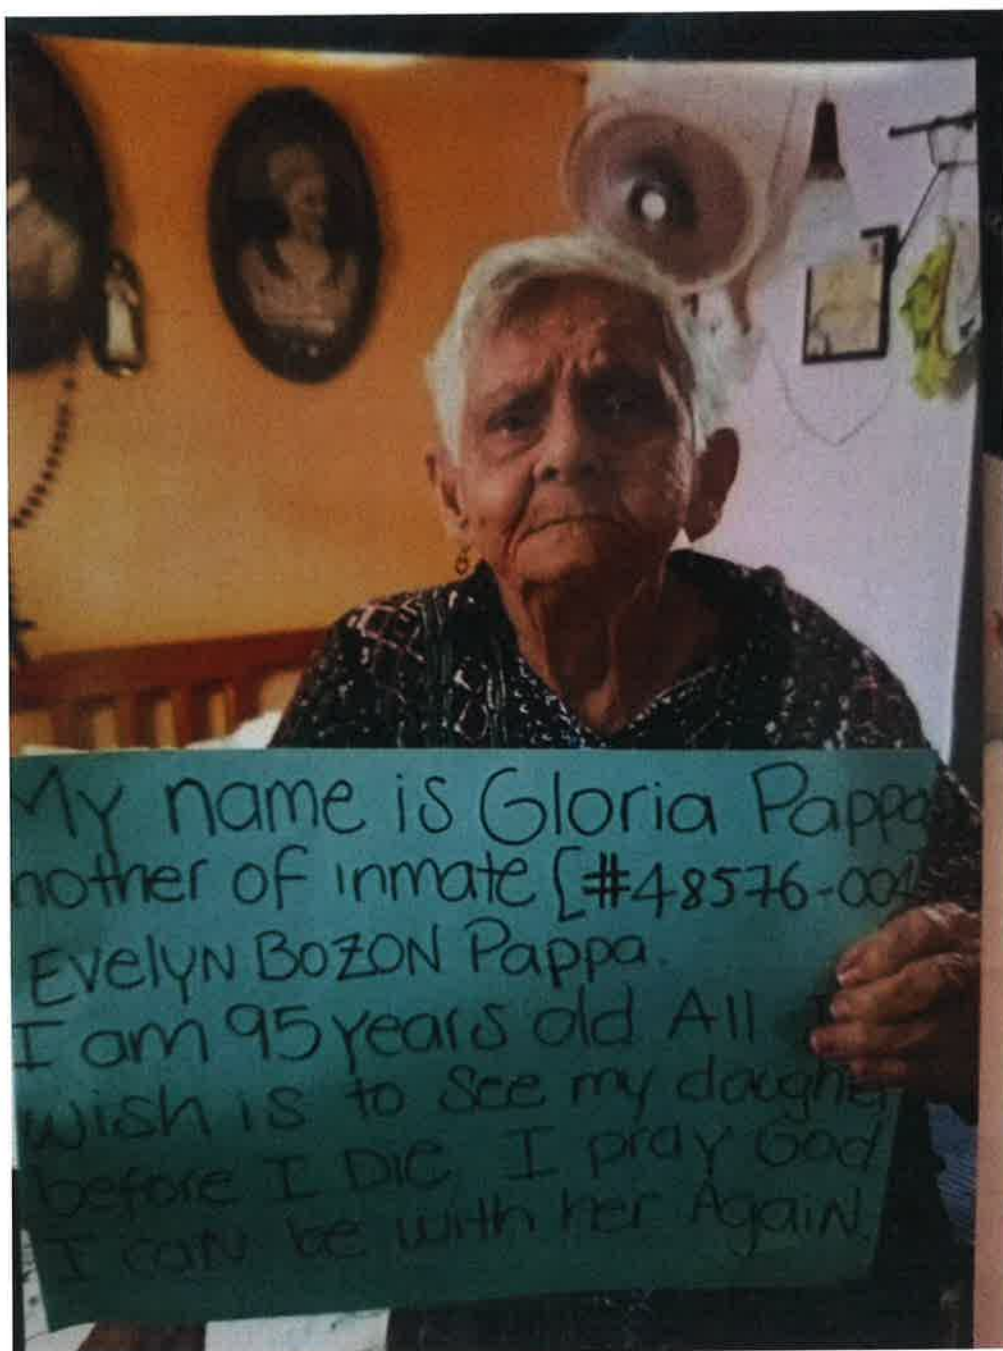 My name is Gloria Pappa
mother of inmate [#48576-004
Evelyn Bozon Pappa.
I am 95 years old All I
wish is to see my daughter
before I Die I pray God
I can be with her Again.